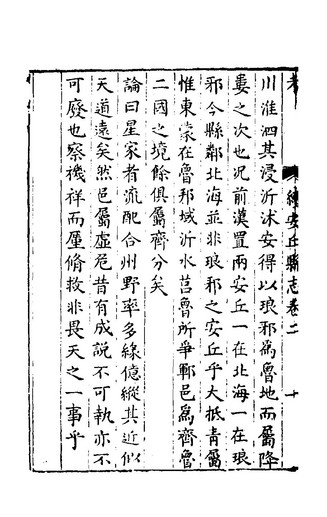 續安丘縣志卷二
十
川淮泗其浸沂沭安得以琅邪爲魯地而屬降
婁之次也况前漢置兩安丘一在北海一在琅
邪今縣鄰北海並非琅邪之安丘乎大抵青屬
惟東蒙在魯邦域沂水莒魯所爭鄆邑爲齊魯
二國之境餘俱屬齊分矣
論曰星家者流配合州野率多緣億縱其近似
天道遠矣然邑屬虛危昔有成說不可執亦不
可廢也察禨祥而厪脩救非畏天之一事乎